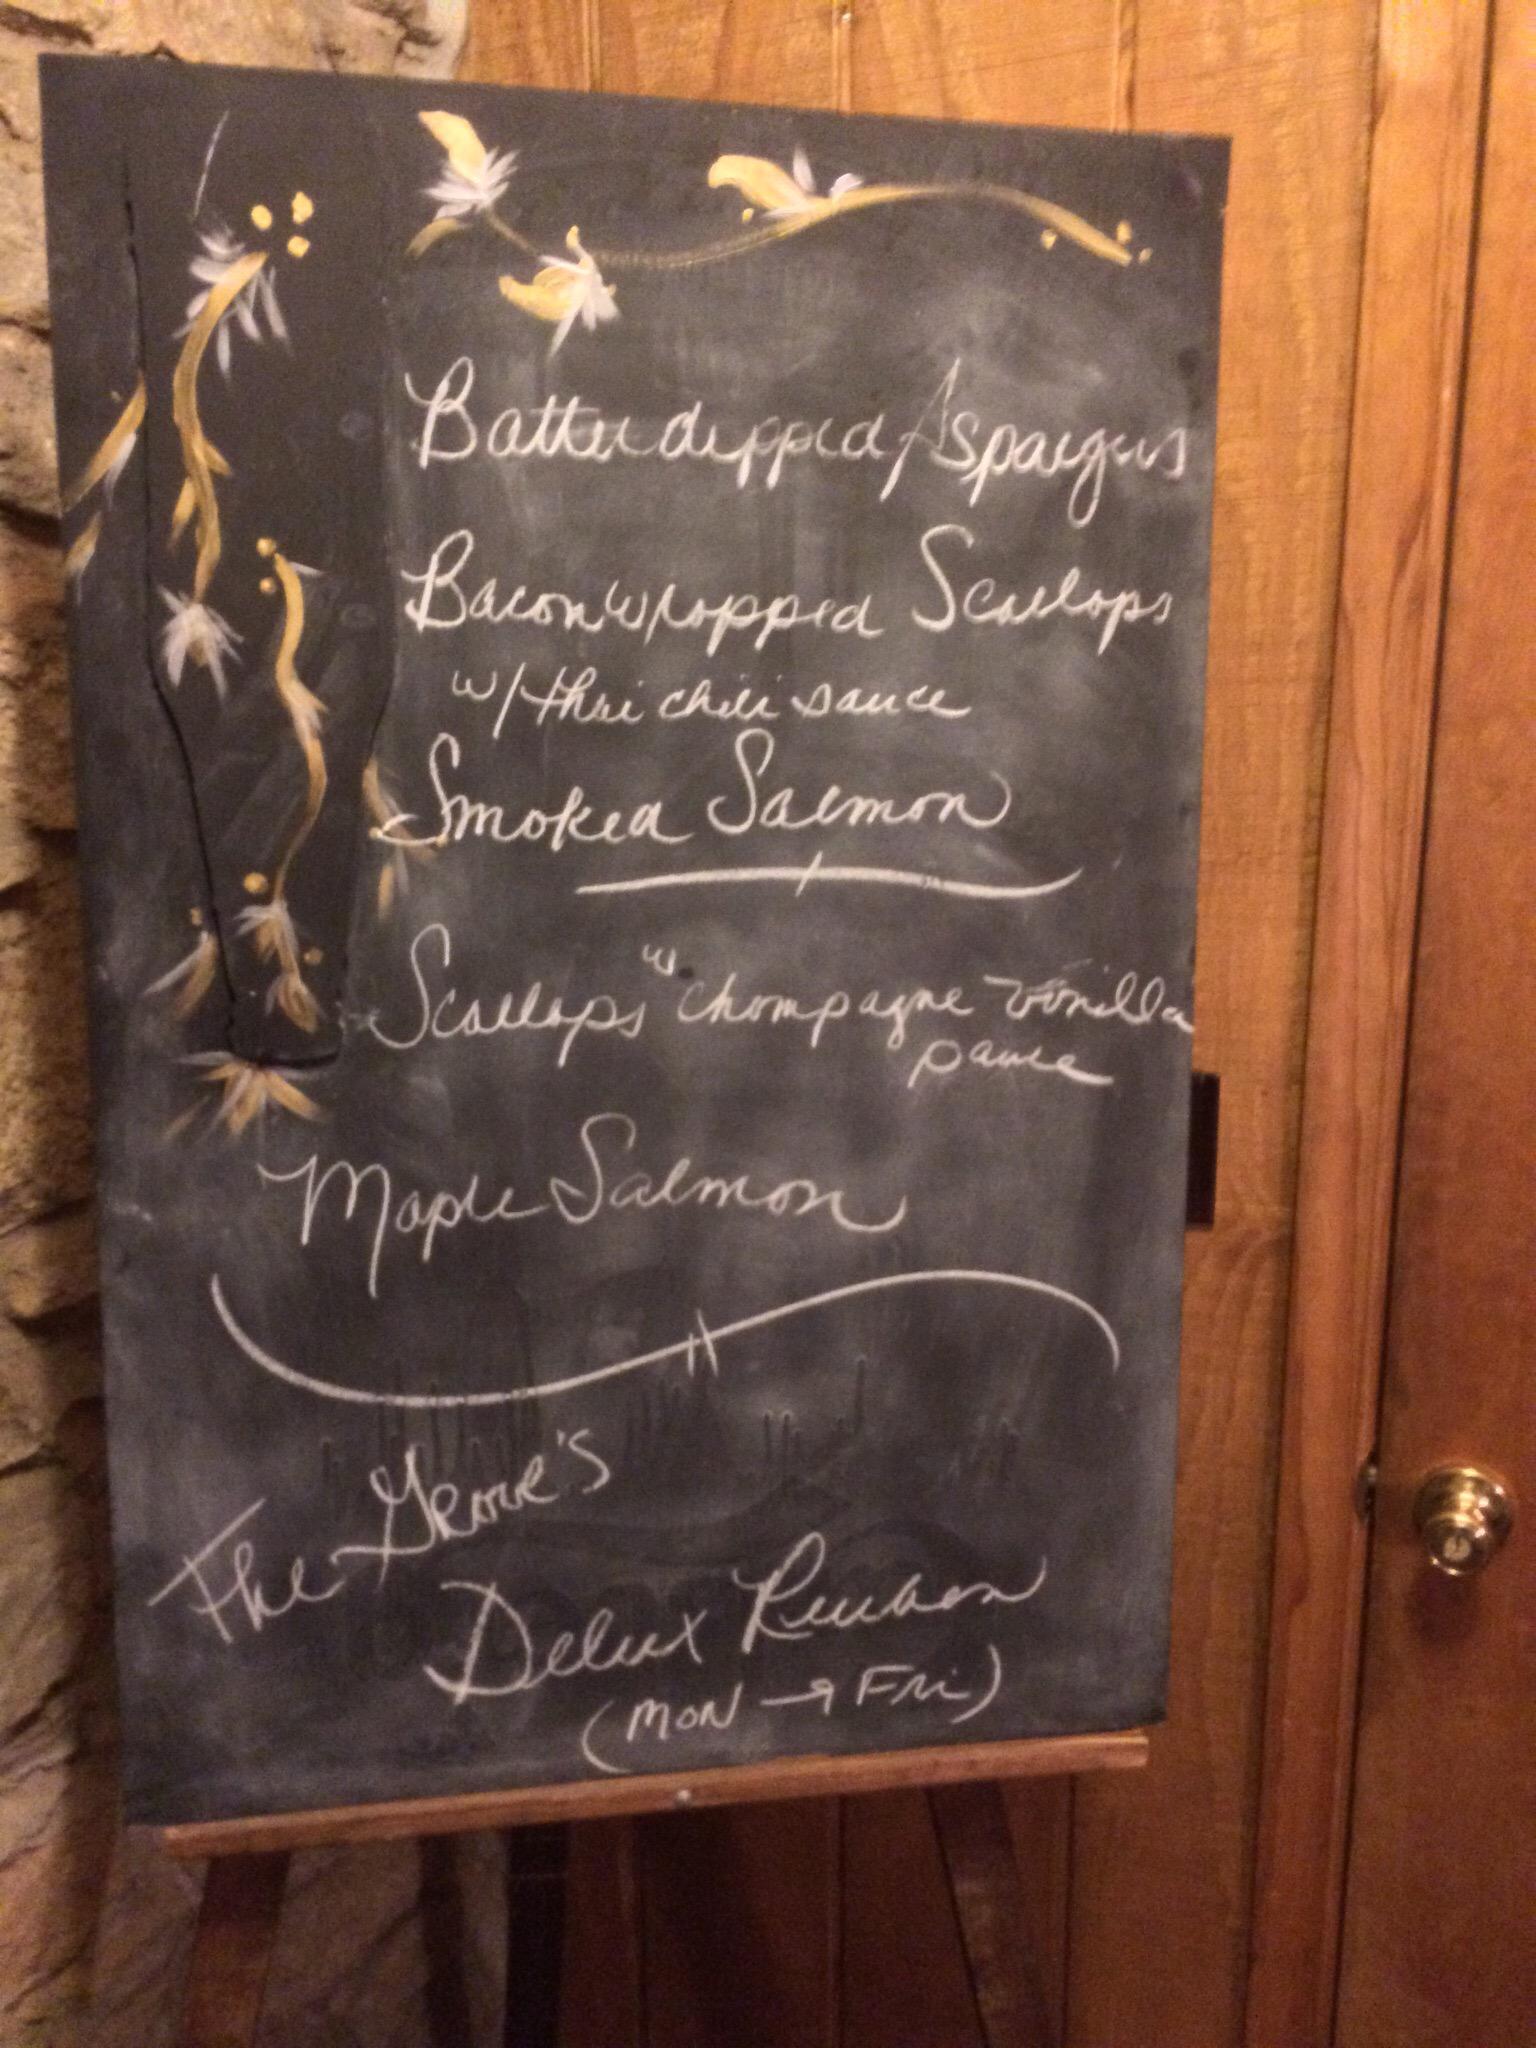 Batter dipped Aspargus
Bacon wrapped Scallops
w/ thai chili sauce
Smoked Salmon
Scallops w. champagne vanilla
sauce
Maple Salmon
The Grove's
Delux Reuben
(MON → Fri)